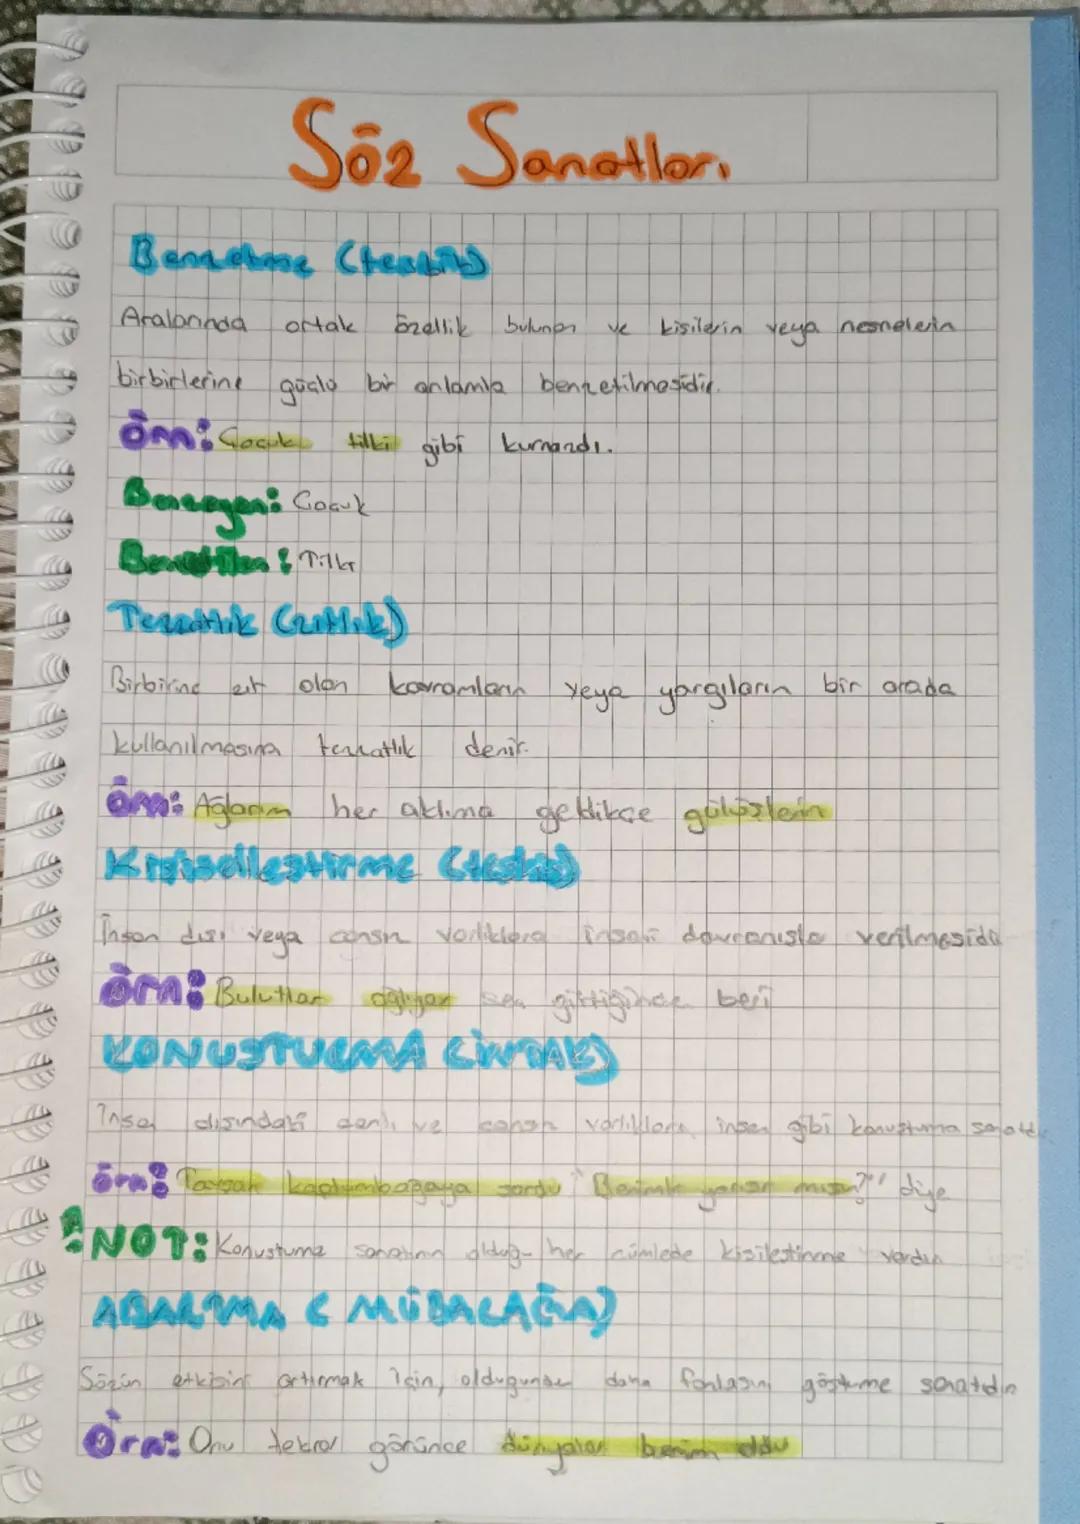 Söz Sanatları
Benzetme (teşbih)
Aralarında ortak özellik bulunan ve kişilerin veya nesnelerin
birbirlerine güçlü bir anlamla benzetilmesidir.
Örn: Çocuk tilki gibi kurnazdı.
Benzeyen: Çocuk
Benzetilen: Tilki
Tezatlık (zıtlık)
Birbirine zıt olan kavramların veya yargıların bir arada
kullanılmasına tezatlık denir.
Örn: Ağlarım her aklıma geldikçe gülüşlerin
Kişiselleştirme (teşhis)
İnsan dışı veya cansız varlıklara insani davranışla verilmesidir
Örn: Bulutlar ağlıyor sen gittiğinden beri
KONUŞTURMA (İNTAK)
İnsan dışındaki canlı ve cansız varlıkların insan gibi konuşturma sanatıdır
Örn: Tavşan kaplumbağaya sordu "Benimle yarışır mısın?" diye
!NOT: Konuşturma sanatının olduğu her cümlede kişileştirme vardır
ABARTMA (MÜBALAĞA)
Sözün etkisini artırmak için, olduğundan daha fazlasını gösterme sanatıdır
Örn: Onu tekrar görünce dünyalar benim oldu